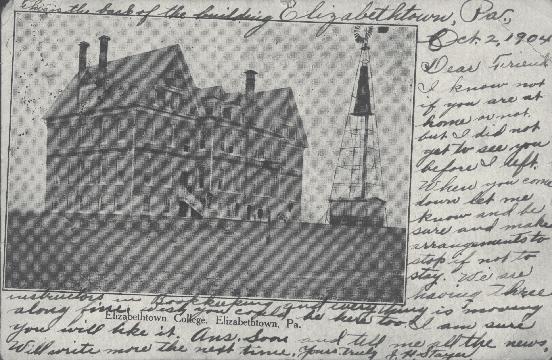 This is the back of the building Elizabethtown, Pa.,
Oct. 2, 1904
Dear Friend
I know not
if you are at
home or not.
but I did not
get to see you
before I left.
When you come
down let me
know and be
sure and make
arrangements to
stop if not to
stay. We are
having three
instructors in Bookkeeping and everything is moving
along fine, wish you could be here too I am sure
you will like it. Ans. soon and tell me all the news
Will write more the next time, Yours truly
Elizabethtown College, Elizabethtown, Pa.